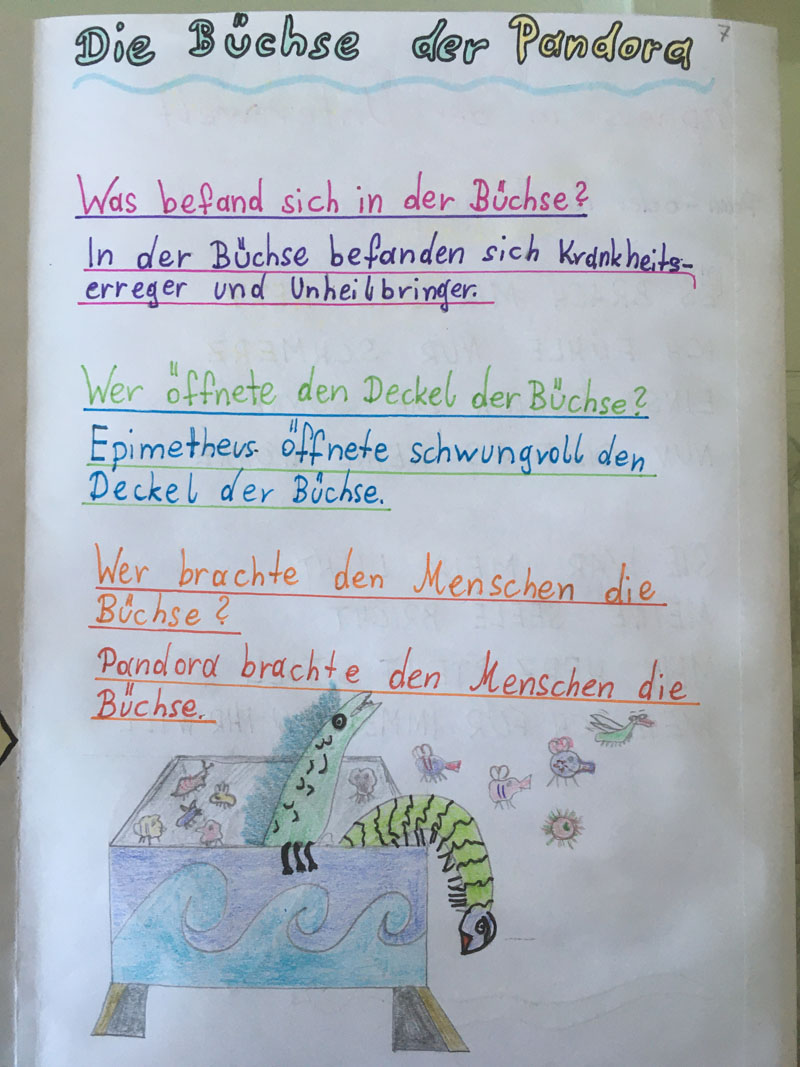 Die Büchse der Pandora
7
Was befand sich in der Büchse?
In der Büchse befanden sich Krankheits-
erreger und Unheilbringer.
Wer öffnete den Deckel der Büchse?
Epimetheus öffnete schwungvoll den
Deckel der Büchse.
Wer brachte den Menschen die
Büchse?
Pandora brachte den Menschen die
Büchse.